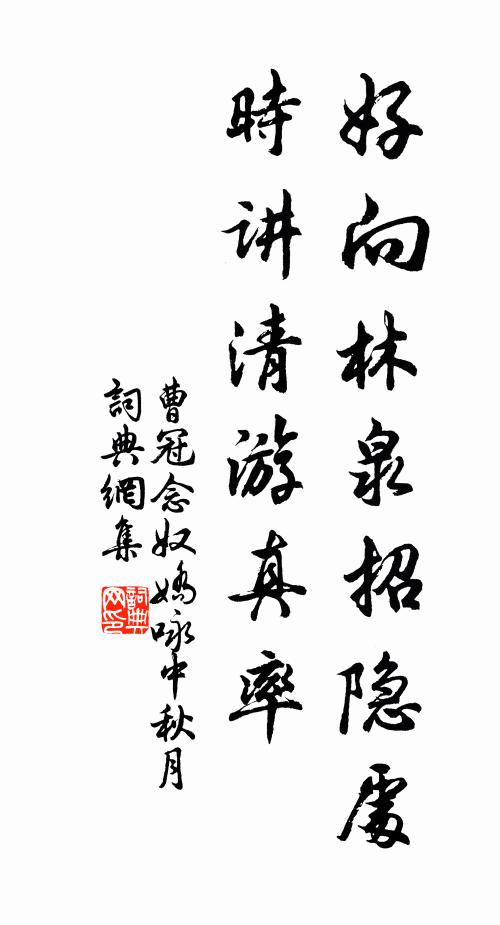 好向林泉招隐處
時讲清游真率
曹冠念奴嬌咏中秋月
詞典網集
詞典网印